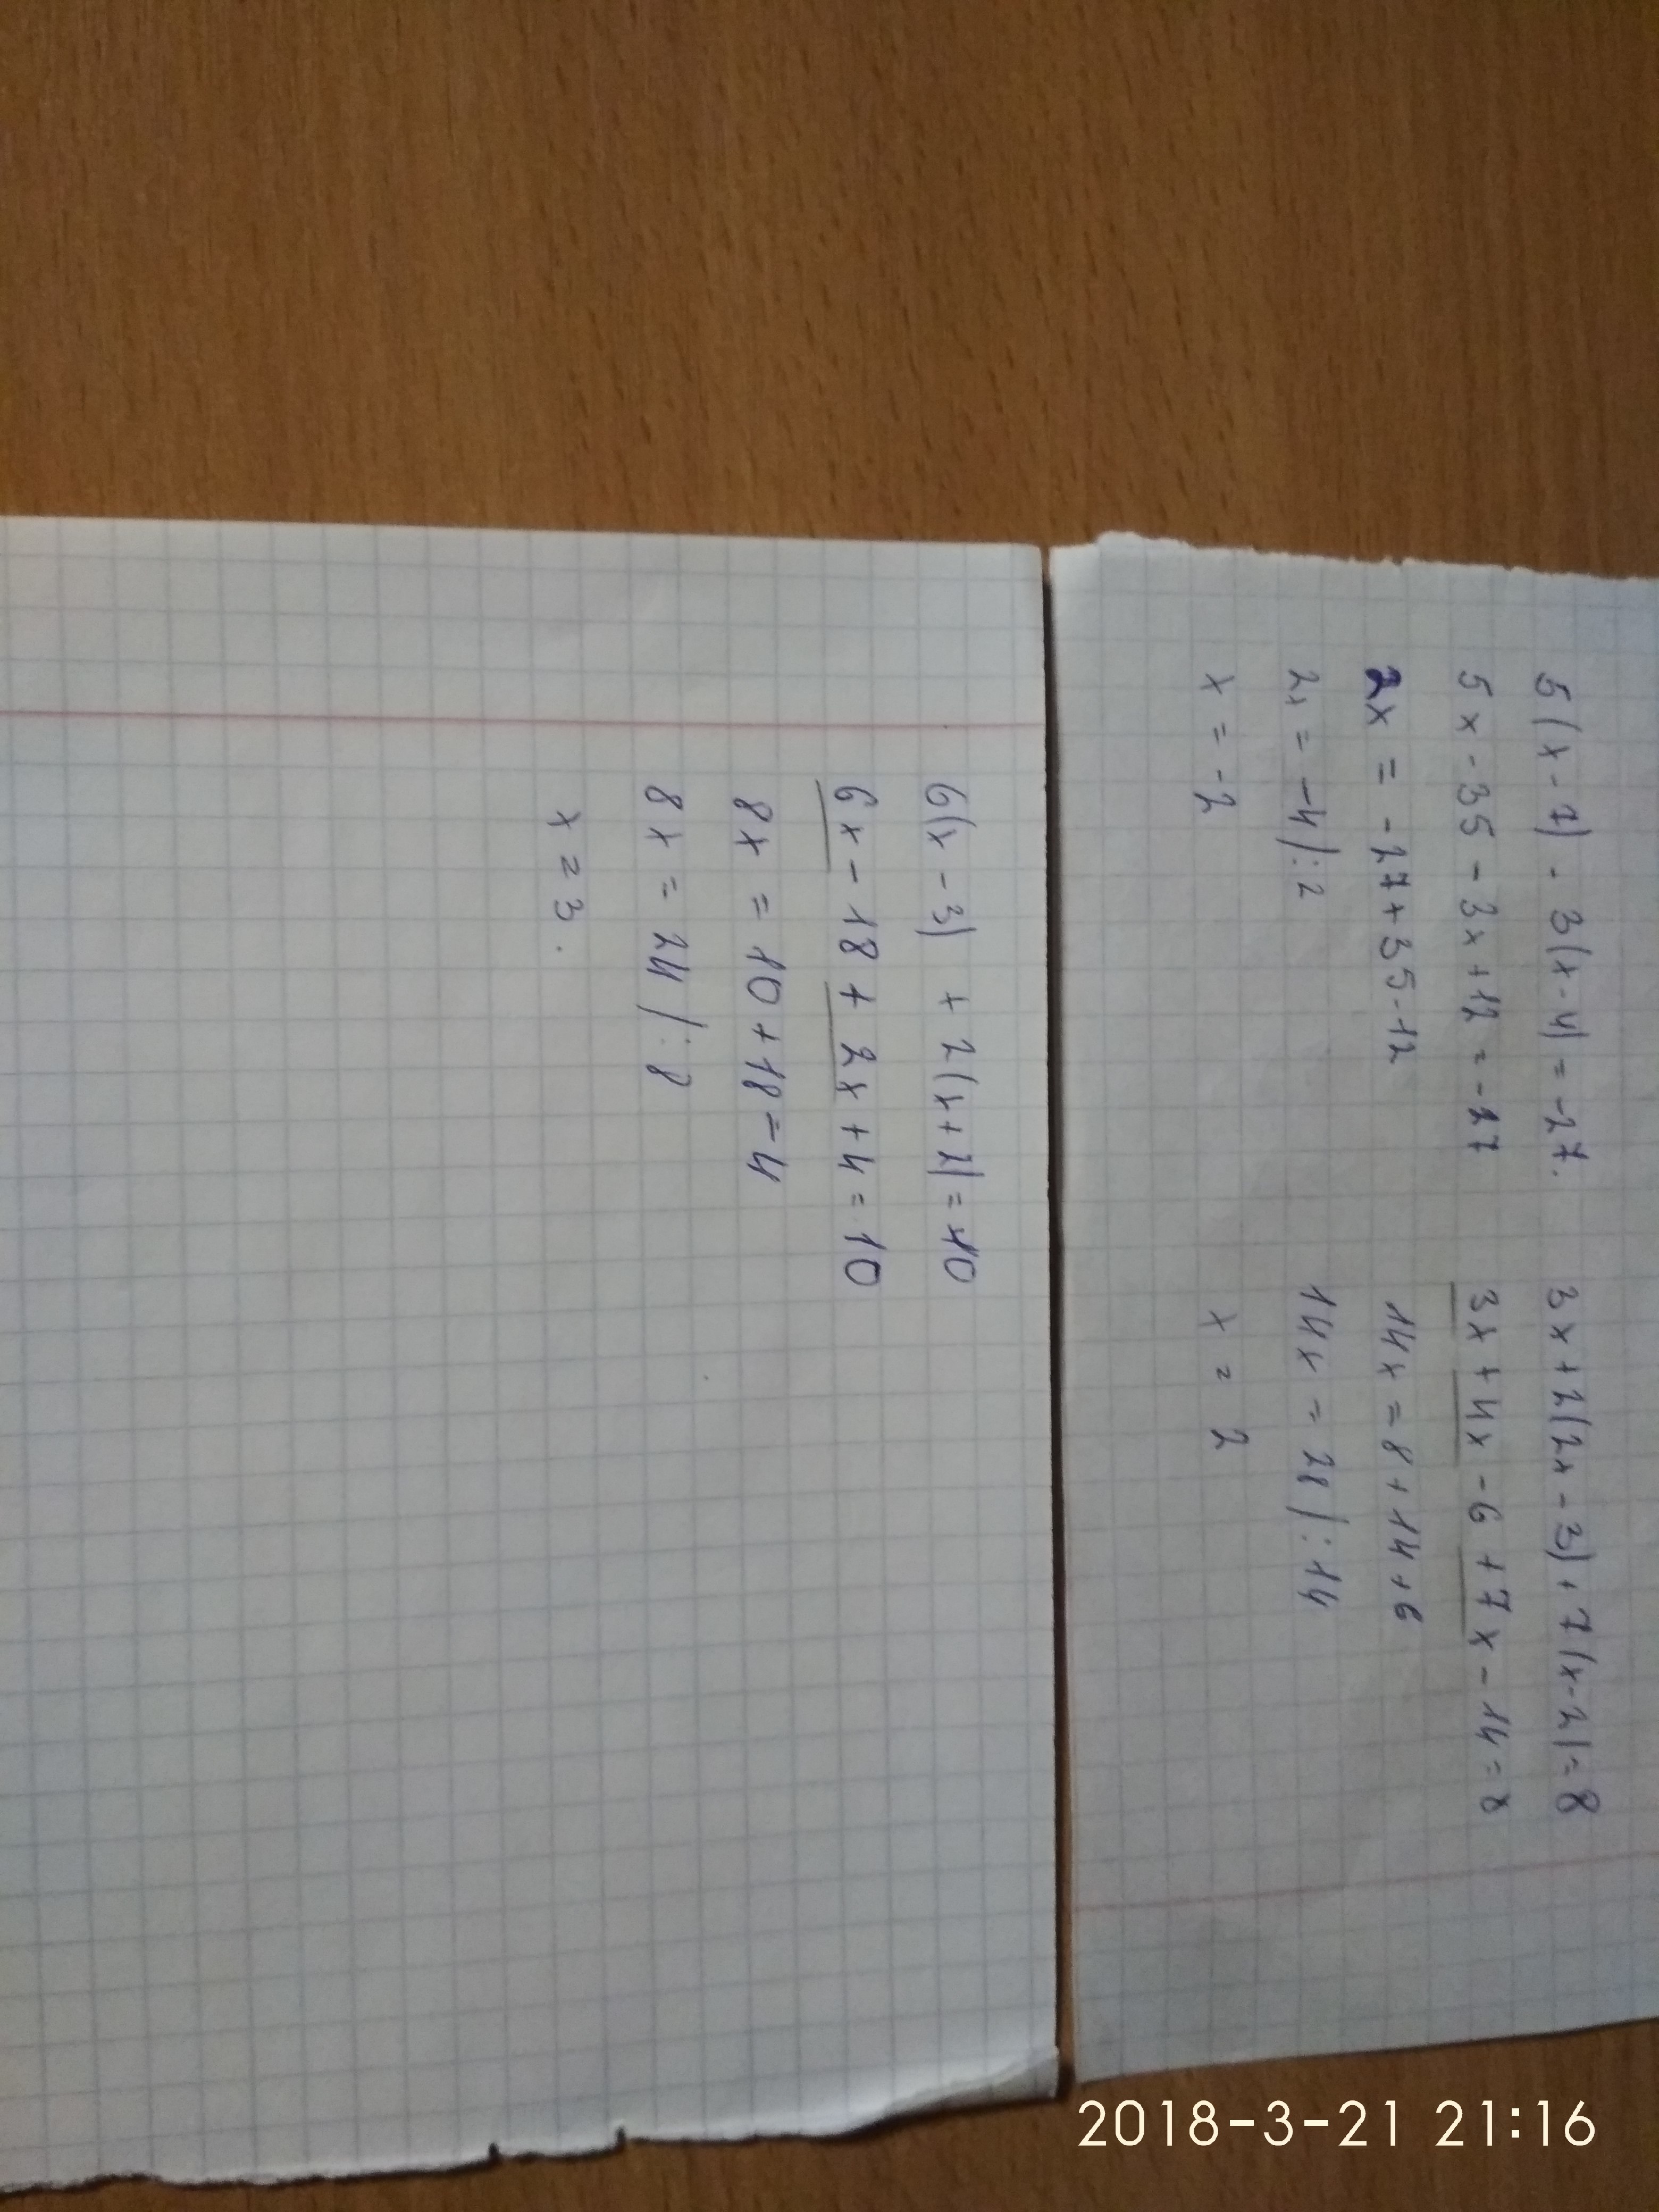 5(x-7) - 3(x-4) = -27.
5x - 35 - 3x + 12 = -27
2x = -27 + 35 - 12
2x = -4 |:2
x = -2
3x + 2(2x - 3) + 7(x-2) = 8
3x + 4x - 6 + 7x - 14 = 8
14x = 8 + 14 + 6
14x = 28 |:14
x = 2
6(x - 3) + 2(x+2) = 10
6x - 18 + 2x + 4 = 10
8x = 10 + 18 - 4
8x = 24 |:8
x = 3.
2018-3-21 21:16